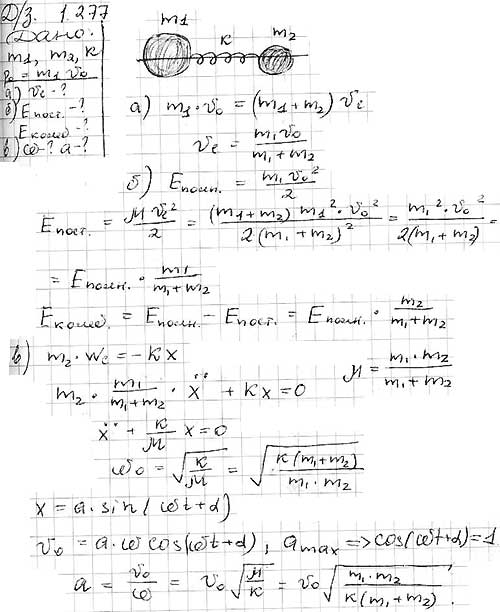 Д/з. 1.277
Дано:
m1, m2, к
p₀ = m1 v₀
а) vc - ?
б) Eпост. - ?
Eколеб - ?
в) ω - ? a - ?
m1
к
m2
а) m1 · v₀ = (m1 + m2) vc
vc = m1 v₀ / (m1 + m2)
б) Eполн. = m1 v₀² / 2
Eпост. = M vc² / 2 = (m1 + m2) m1² · v₀² / 2(m1 + m2)² = m1² · v₀² / 2(m1 + m2) =
= Eполн. · m1 / (m1 + m2)
Eколеб. = Eполн. - Eпост. = Eполн. · m2 / (m1 + m2)
в) m2 · Wc = - Kx
M = m1 · m2 / (m1 + m2)
m2 · m1 / (m1 + m2) · ẍ + Kx = 0
ẍ + K/M x = 0
ω₀ = √(K/M) = √(K(m1 + m2) / m1 · m2)
x = a · sin(ωt + α)
v₀ = a · ω cos(ωt + α), amax => cos(ωt + α) = 1
a = v₀/ω = v₀ √(M/K) = v₀ √(m1 · m2 / K(m1 + m2)).